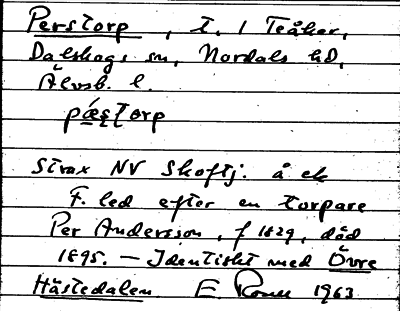 Perstorp, t. 1 Teåker,
Dalskogs sn, Nordals hd,
Älvsb. l.
pæstorp
Strax NV Skoftj. å ek
F. led efter en torpare
Per Andersson, f 1829, död
1895. – Identiskt med Övre
Hästedalen. E. 1963